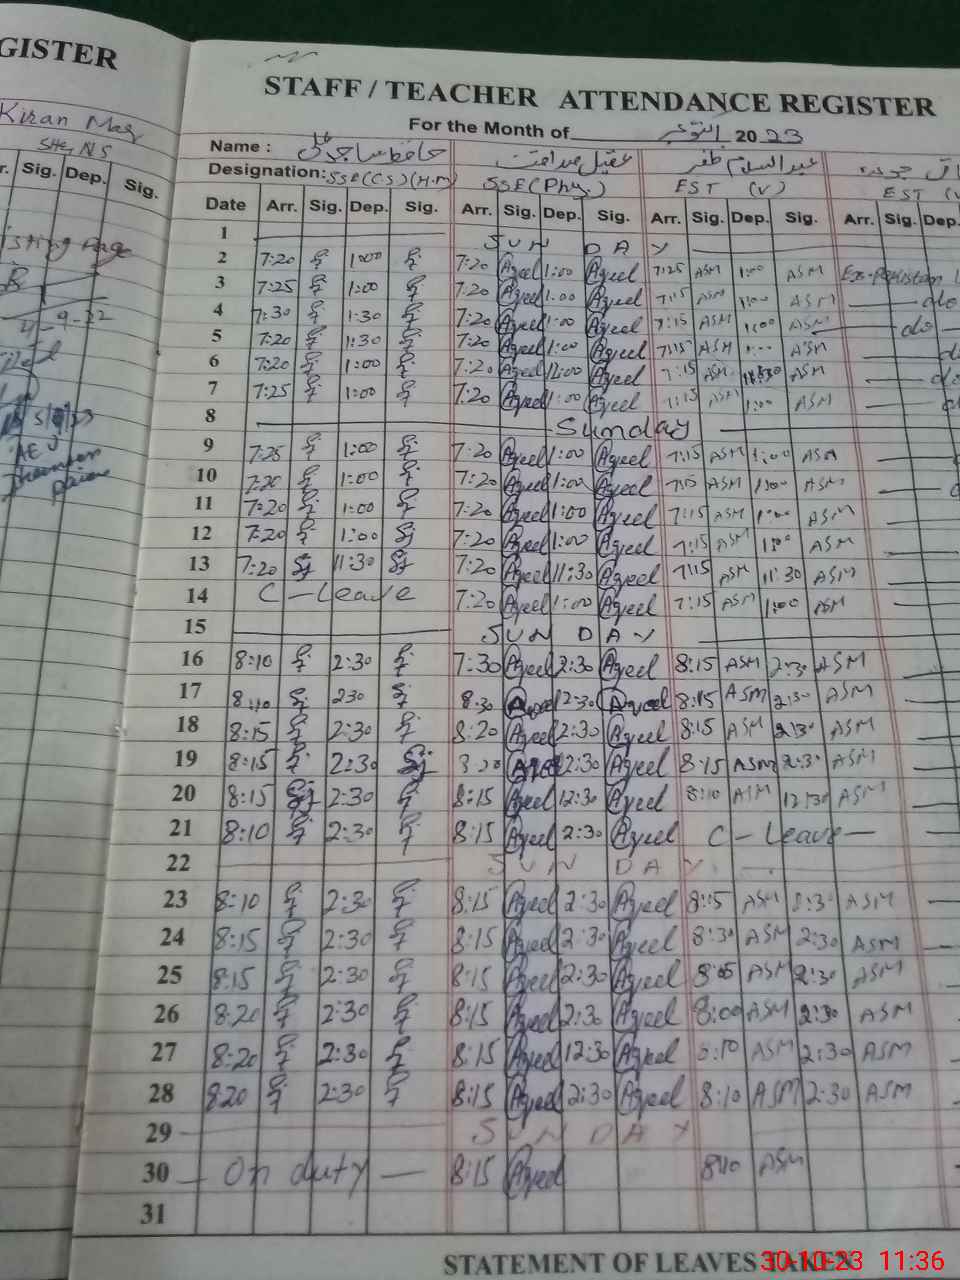 GISTER
STAFF / TEACHER ATTENDANCE REGISTER
Kiran
For the Month of اکتوبر 2023
SHe NS
Name : حافظ ساجد عقیل صداقت عبدالسلام ظفر
Designation: SSE(CS)(H.M) SSE(Phy) EST (V) EST (V
r. Sig. Dep. Sig.
Date Arr. Sig. Dep. Sig. Arr. Sig. Dep. Sig. Arr. Sig. Dep. Sig. Arr. Sig. Dep.
1 SUN DAY
2 7:20 1:00 7:20 Aqeel 1:00 Aqeel 7:25 ASM 1:00 ASM Ex-Pakistan
3 7:25 1:00 7:20 Aqeel 1:00 Aqeel 7:15 ASM 1:00 ASM do
4 7:30 1:30 7:20 Aqeel 1:00 Aqeel 7:15 ASM 1:00 ASM do
5 7:20 1:30 7:20 Aqeel 1:00 Aqeel 7:15 ASM ASM
6 7:20 1:00 7:20 Aqeel 12:00 Aqeel 7:15 ASM ASM
7 7:25 1:00 7:20 Aqeel 1:00 Aqeel 7:15 ASM 1:00 ASM
8 Sunday
9 7:25 1:00 7:20 Aqeel 1:00 Aqeel 7:15 ASM 1:00 ASM
10 7:20 1:00 7:20 Aqeel 1:00 Aqeel 7:15 ASM 1:00 ASM
11 7:20 1:00 7:20 Aqeel 1:00 Aqeel 7:15 ASM 1:00 ASM
12 7:20 1:00 7:20 Aqeel 1:00 Aqeel 7:15 ASM 1:00 ASM
13 7:20 11:30 7:20 Aqeel 11:30 Aqeel 7:15 ASM 11:30 ASM
14 C-Leave 7:20 Aqeel 1:00 Aqeel 7:15 ASM 1:00 ASM
15 SUN DAY
16 8:10 2:30 7:30 Aqeel 2:30 Aqeel 8:15 ASM 2:30 ASM
17 8:10 230 8:30 Aqeel 2:30 Aqeel 8:15 ASM 2:30 ASM
18 8:15 2:30 8:20 Aqeel 2:30 Aqeel 8:15 ASM 2:30 ASM
19 8:15 2:30 Aqeel 2:30 Aqeel 8:15 ASM 2:30 ASM
20 8:15 2:30 8:15 Aqeel 12:30 Aqeel 8:10 ASM 12:30 ASM
21 8:10 2:30 8:15 Aqeel 2:30 Aqeel C-Leave
22 SUN DAY
23 8:10 2:30 8:15 Aqeel 2:30 Aqeel 8:15 ASM ASM
24 8:15 2:30 8:15 Aqeel 2:30 Aqeel 8:30 ASM 2:30 ASM
25 8:15 2:30 8:15 Aqeel 2:30 Aqeel 8:05 ASM 2:30 ASM
26 8:20 2:30 8:15 Aqeel 2:30 Aqeel 8:00 ASM 2:30 ASM
27 8:20 2:30 8:15 Aqeel 12:30 Aqeel 8:10 ASM 2:30 ASM
28 820 2:30 8:15 Aqeel 2:30 Aqeel 8:10 ASM 2:30 ASM
29 SUN DAY
30 On duty 8:15 Aqeel 8:10 ASM
31
STATEMENT OF LEAVES TAKEN
30-10-23 11:36